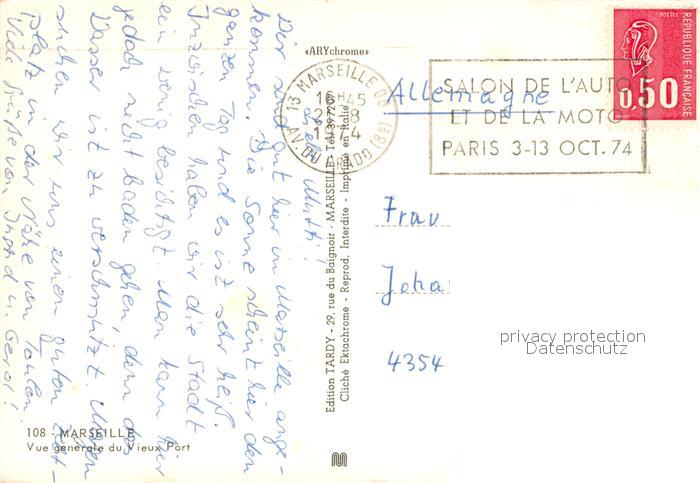 «ARYchrome»
13 MARSEILLE 08
16H45
AV. DU PRADO (8e)
SALON DE L'AUTO
ET DE LA MOTO
PARIS 3-13 OCT. 74
POSTES
RÉPUBLIQUE FRANÇAISE
0,50
Allemagne
Liebe Mutti!
Wir sind gut hier in Marseille ange-
kommen. Die Sonne scheint hier den
ganzen Tag und es ist sehr heiß.
Inzwischen haben wir die Stadt
ein wenig besichtigt. Man kann hier
jedoch nicht baden gehen, denn das
Wasser ist zu verschmutzt. Morgen
suchen wir uns einen guten Zelt-
platz in der Nähe von Toulon.
Viele Grüße von Ingrid u. Gerol!
Edition TARDY - 29, rue du Baignoir - MARSEILLE - Tél. 39.72.20
Cliché Ektachrome - Reprod. Interdite - Imprimé en Italie
Frau
Joha
4354
privacy protection
Datenschutz
108 - MARSEILLE
Vue générale du Vieux Port